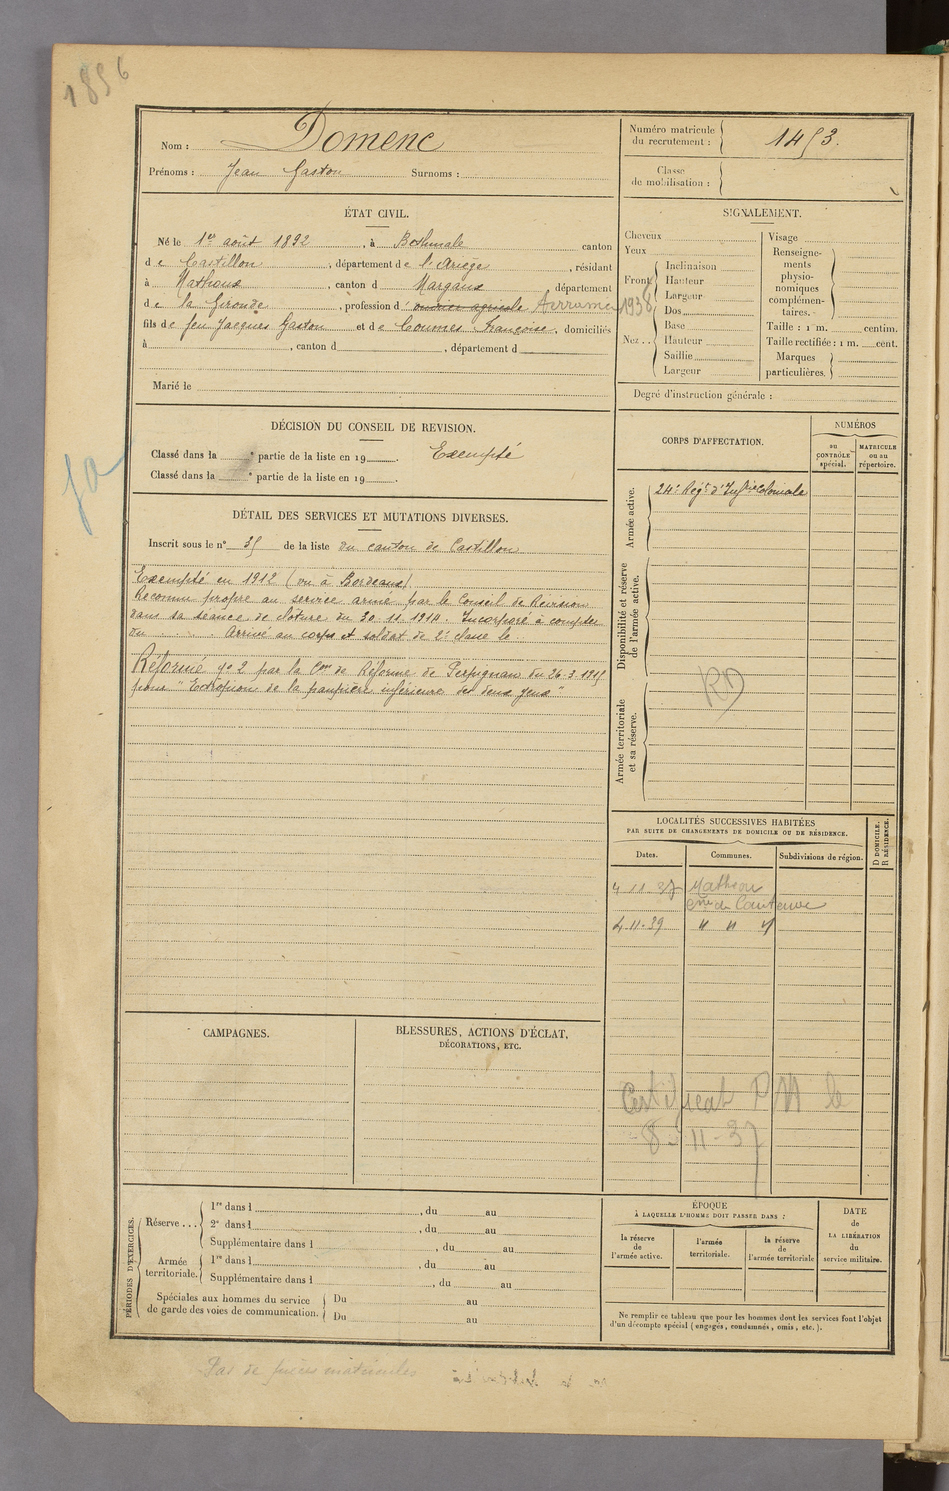 1896
Nom : Domenc
Prénoms : Jean Gaston Surnoms :
Numéro matricule du recrutement : 1453.
Classe de mobilisation :
ÉTAT CIVIL.
Né le 1er août 1892, à Bethmale canton
de Castillon, département de l'Ariège, résidant
à Mathoux, canton d Margaux département
de la Gironde, profession d' ouvrier agricole 1938
fils de feu Jacques Gaston et de Coumes Françoise, domiciliés
à , canton d , département d
Marié le
SIGNALEMENT.
Cheveux
Yeux
Front Inclinaison
Hauteur
Largeur
Nez .. Dos
Base
Hauteur
Saillie
Largeur
Visage
Renseignements physionomiques complémentaires.
Taille : 1 m. centim.
Taille rectifiée : 1 m. cent.
Marques particulières.
Degré d'instruction générale :
DÉCISION DU CONSEIL DE REVISION.
Classé dans la e partie de la liste en 19 . Exempté
Classé dans la e partie de la liste en 19 .
CORPS D'AFFECTATION.
NUMÉROS
AU CONTRÔLE spécial.
MATRICULE ou au répertoire.
Armée active.
24e Régt d'Infrie Coloniale
Disponibilité et réserve de l'armée active.
Armée territoriale et sa réserve.
RD
DÉTAIL DES SERVICES ET MUTATIONS DIVERSES.
Inscrit sous le n° 35 de la liste du canton de Castillon
Exempté en 1912 (vu à Bordeaux)
Reconnu propre au service armé par le Conseil de Révision
dans sa séance de clôture du 30.11.1914. Incorporé à compter
du . . . . Arrivé au corps et soldat de 2e classe le
Réformé n° 2 par la Con de Réforme de Perpignan du 26-3-1915
pour "Ectropion de la paupière inférieure des deux yeux"
LOCALITÉS SUCCESSIVES HABITÉES
PAR SUITE DE CHANGEMENTS DE DOMICILE OU DE RÉSIDENCE.
Dates. Communes. Subdivisions de région. D DOMICILE. R RÉSIDENCE.
4 11 37 Matheou
cne de Cantenac
4-11-39 " " "
Certificat PM le
8-11-37
CAMPAGNES.
BLESSURES, ACTIONS D'ÉCLAT,
DÉCORATIONS, ETC.
PÉRIODES D'EXERCICES.
Réserve ... 1re dans l , du au
2e dans l , du au
Supplémentaire dans l , du au
Armée territoriale. 1re dans l , du au
Supplémentaire dans l , du au
Spéciales aux hommes du service de garde des voies de communication. Du au
Du au
ÉPOQUE
À LAQUELLE L'HOMME DOIT PASSER DANS :
la réserve de l'armée active.
l'armée territoriale.
la réserve de l'armée territoriale
DATE de LA LIBÉRATION du service militaire.
Ne remplir ce tableau que pour les hommes dont les services font l'objet
d'un décompte spécial (engagés, condamnés, omis, etc.).
Pas de pièces matricules